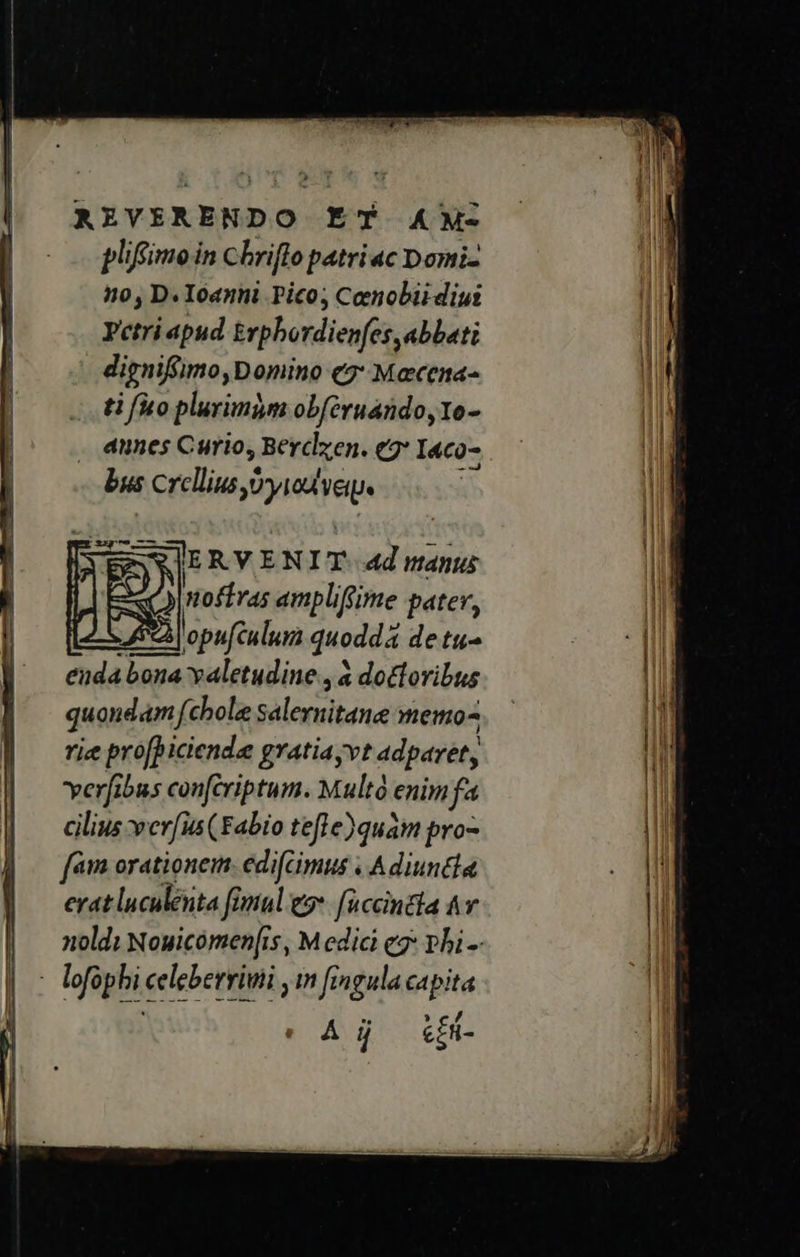 REVERENDO ET AM-
pliſſimo in Chriſto patri ac Domi-
no, D. Ioanni Pico, Cœnobii diui
Petri apud Erphordienſes, abbati
digniſſimo, Domino & Mæcena-
ti ſuo plurimùm obſeruando, Io-
annes Curio, Berckzen. & Iaco-
bus Crellius, ὑγιαίνειν.
PERVENIT ad manus
noſtras ampliſſime pater,
opuſculum quoddã de tu-
enda bona valetudine, à doctoribus
quondam ſcholæ Salernitanæ memo-
riæ proſpiciendæ gratia, vt adparet,
verſibus conſcriptum. Multò enim fa
cilius verſus (Fabio teſte) quàm pro-
ſam orationem ediſcimus. Adiuncta
erat luculenta ſimul & ſuccincta Ar
noldi Nouicomenſis, Medici & Phi-
loſophi celeberrimi, in ſingula capita
A ij